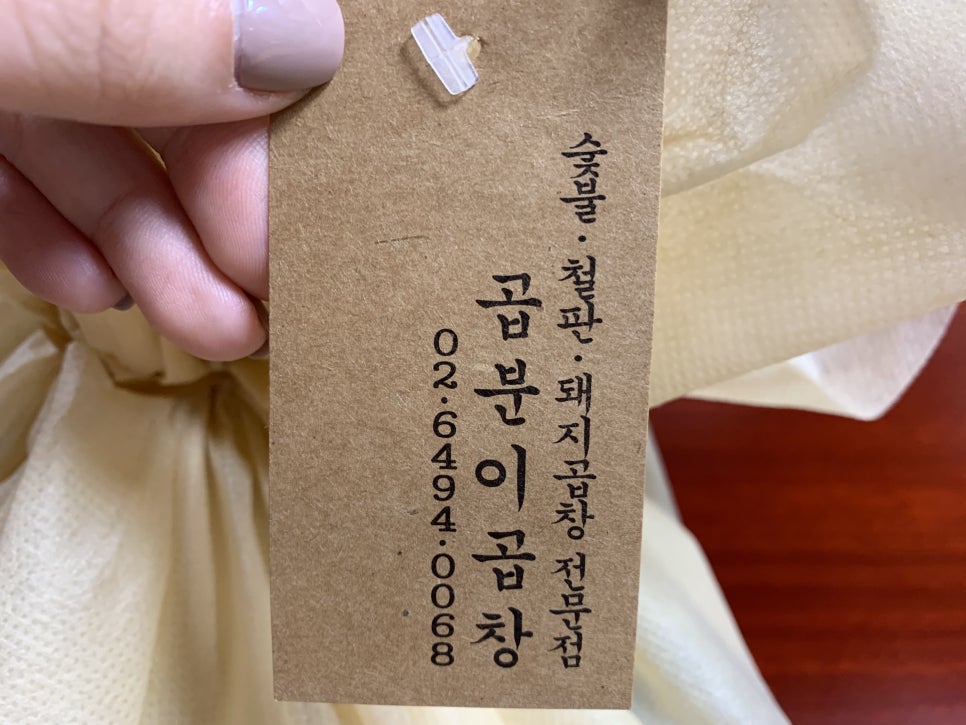 숯불·철판·돼지곱창 전문점
곱분이곱창
02·6494·0068